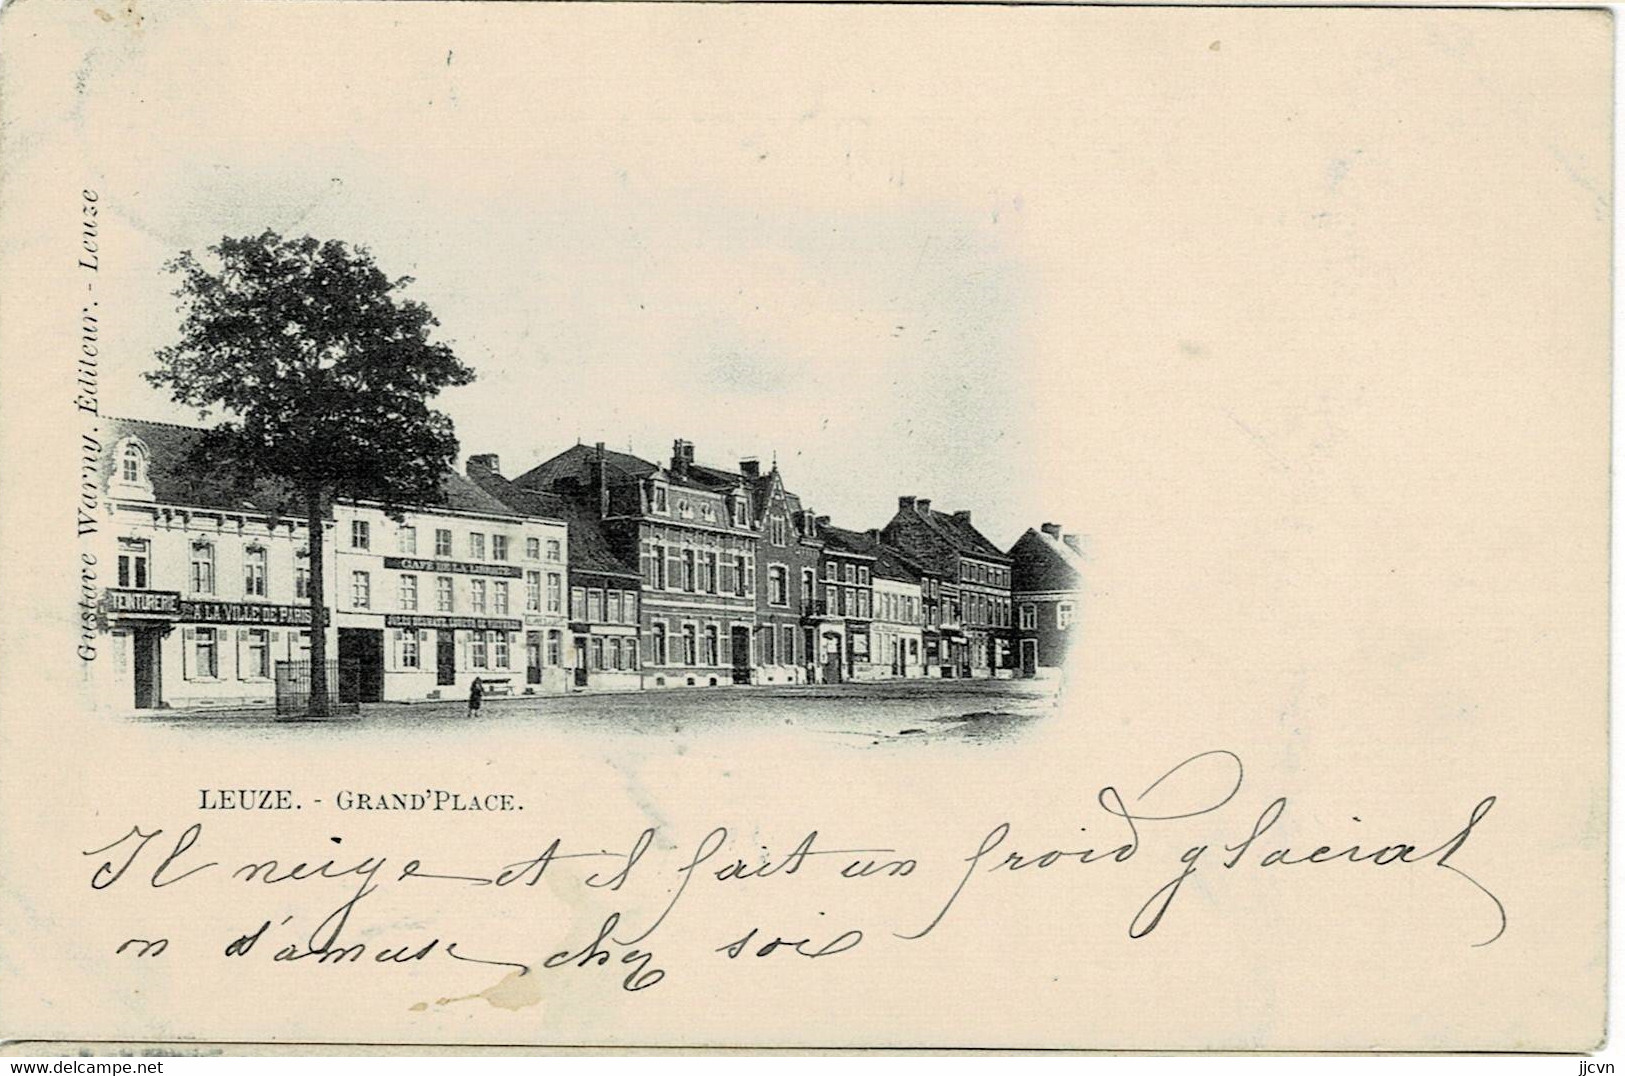 Gustave Warny, Éditeur. - Leuze
TEINTURERIE
A LA VILLE DE PARIS
CAFÉ DE LA
LEUZE. - GRAND'PLACE.
Il neige et il fait un froid glacial
on s'amuse chez soi
jjcvn